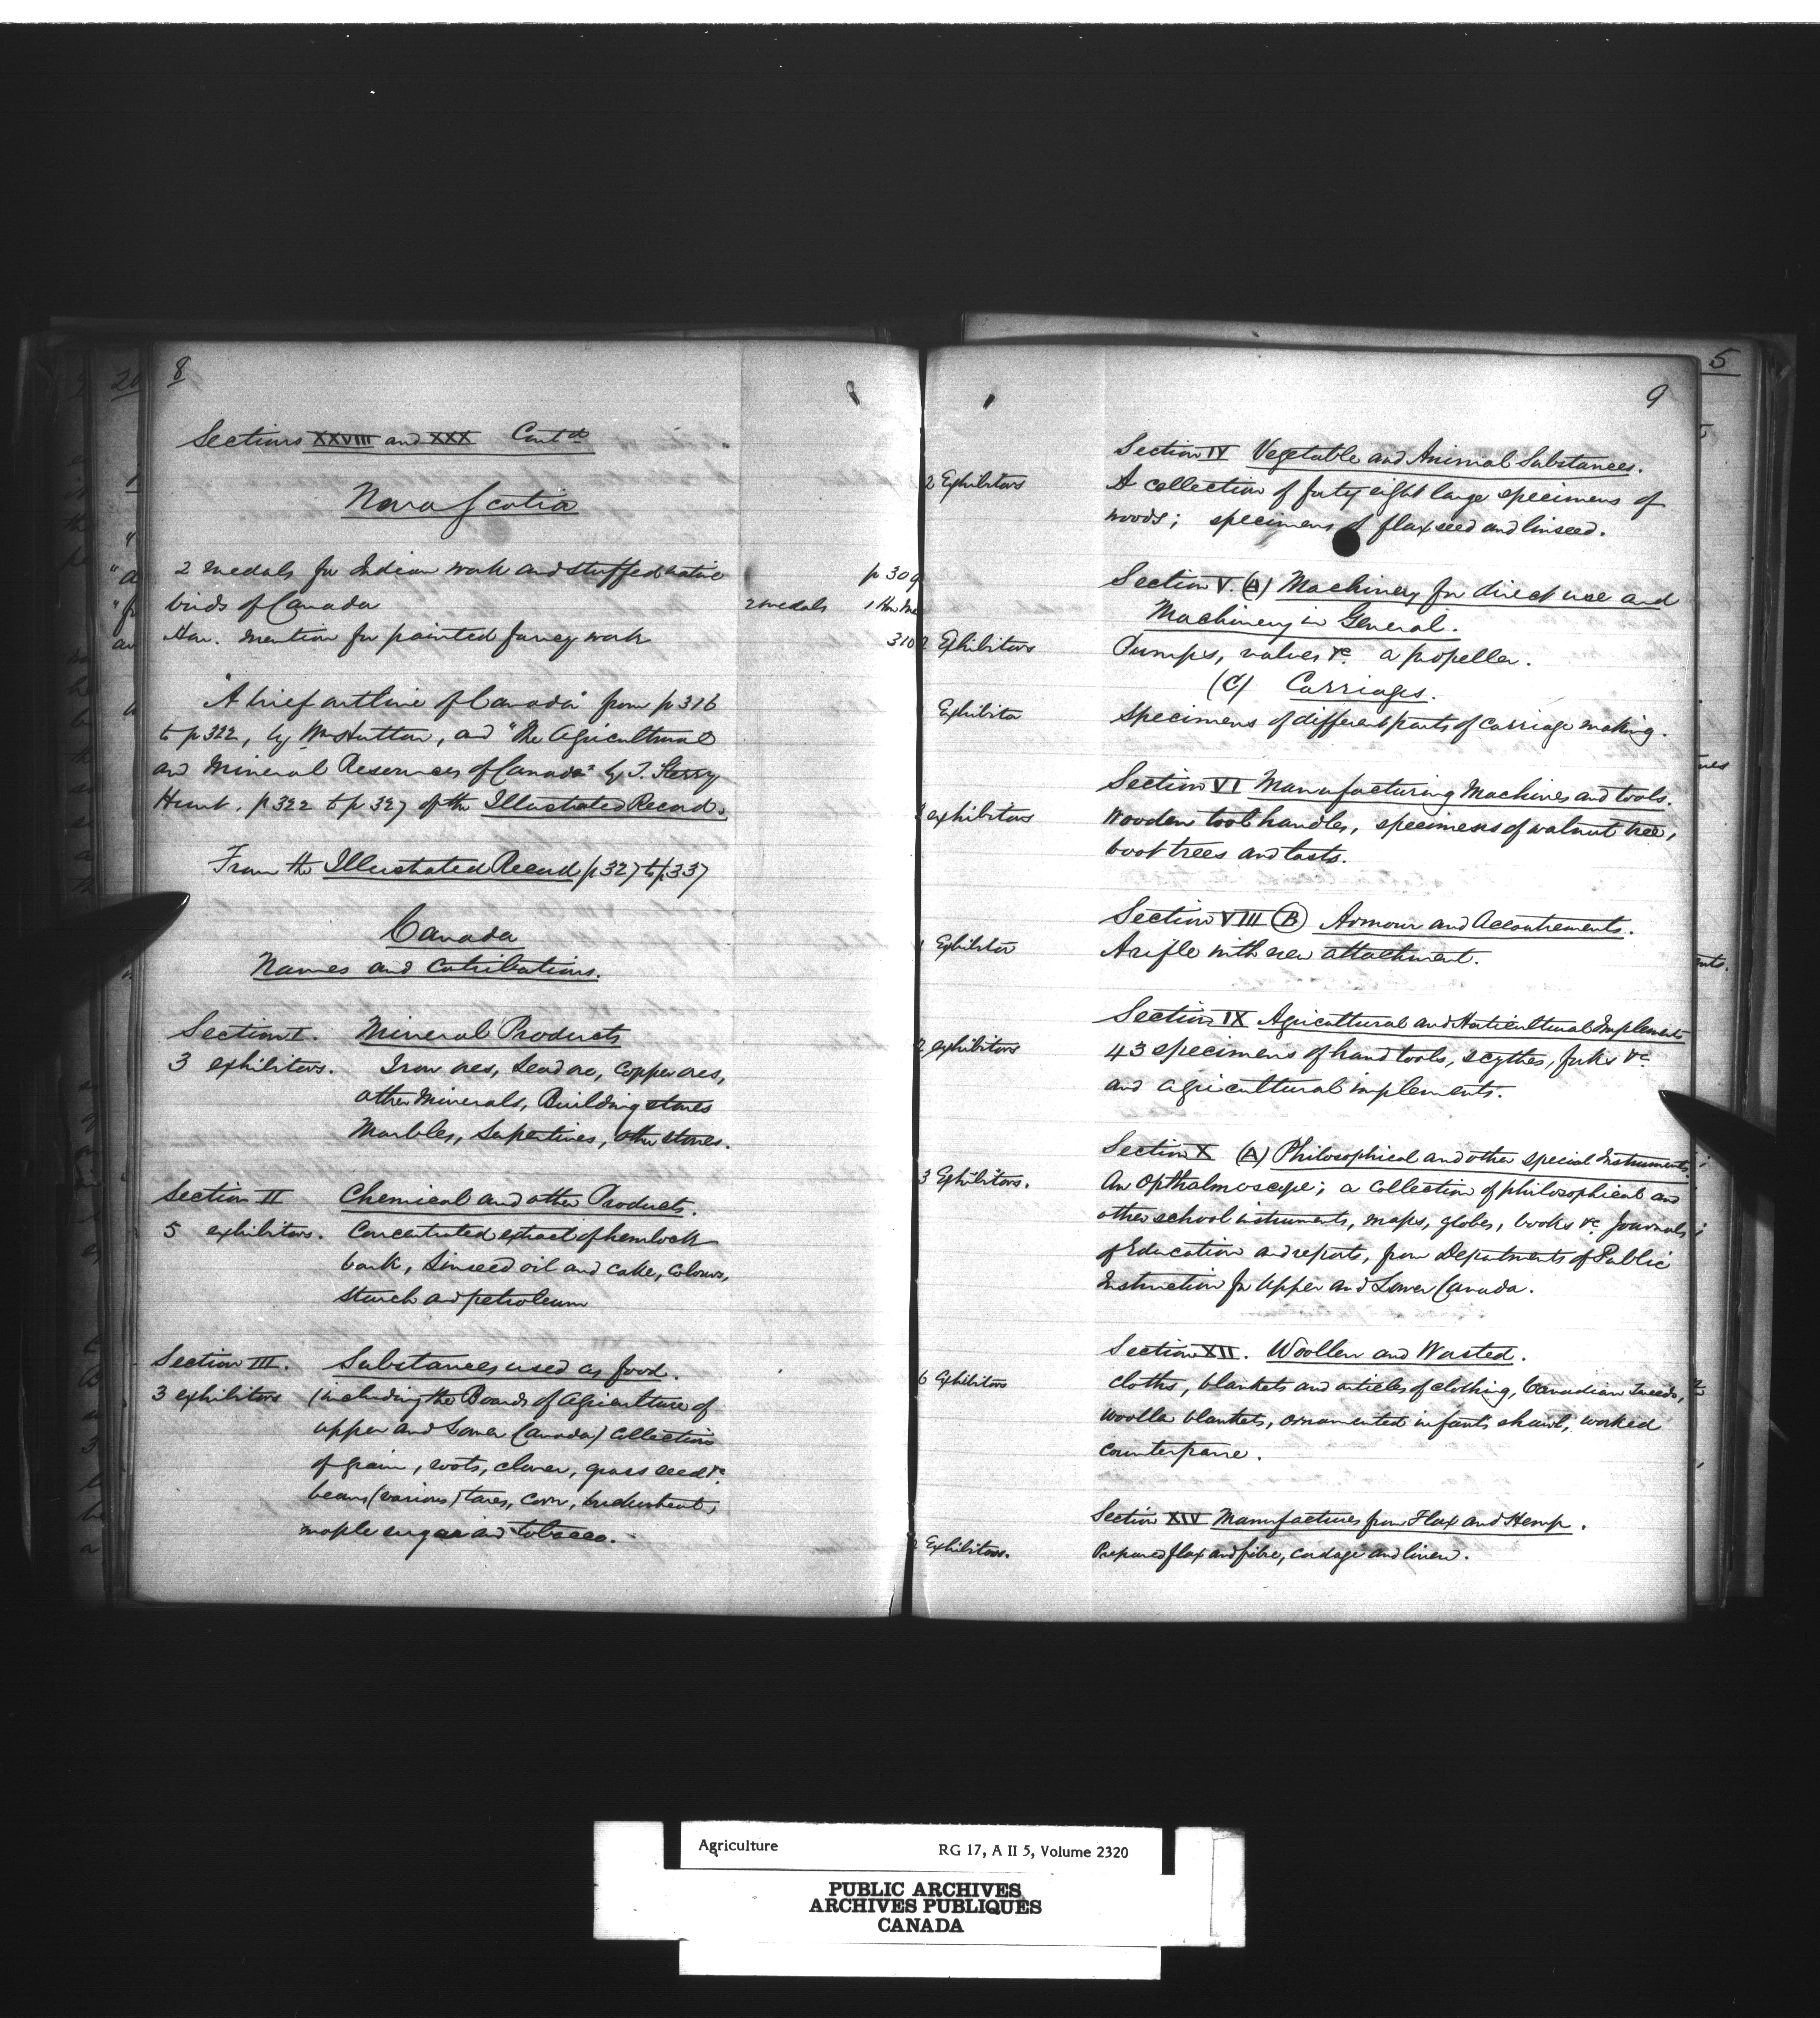 8
Sections XXVIII and XXX Cont'd
Nova Scotia
2 medals for Indian work and stuffed native p 309
birds of Canada 2 medals 1 Hon Me
Hon. mention for painted fancy work 310
"A brief outline of Canada" from p 316
to p 322, by Wm Hutton, and "The Agricultural
and Mineral Resources of Canada" by T. Sterry
Hunt. p 322 to p 327 of the Illustrated Record.
From the Illustrated Record p 327 to p 337
Canada
Names and Cotributions.
Section I. Mineral Products
3 exhibitors. Iron ores, Lead ore, Copper ores,
other Minerals, Building stones
Marbles, Serpentines, other stones.
Section II Chemical and other Products.
5 exhibitors. Concentrated extract of hemlock
bark, Linseed oil and cake, Colours,
starch and petroleum
Section III. Substances used as food.
3 exhibitors (including the Boards of Agriculture of
Upper and Lower Canada) Collections
of grain, roots, clover, grass seed &c
beans (various) tares, corn, buckwheat,
maple sugar and tobacco.
5
9
Section IV Vegetable and Animal Substances.
2 Exhibitors A collection of forty eight large specimens of
woods; specimens of flaxseed and linseed.
Section V. (A) Machinery for direct use and
Machinery in General.
2 Exhibitors Pumps, valves &c. a propeller.
(C) Carriages.
Exhibitor Specimens of different parts of carriage making.
Section VI Manufacturing Machines and tools.
3 exhibitors Wooden tool handles, specimens of walnut tree,
boot trees and lasts.
Section VIII (B) Armour and Accoutrements.
1 Exhibitor A rifle with new attachment.
Section IX Agricultural and Horticultural Implements
2 exhibitors 43 specimens of hand tools, scythes, forks &c
and agricultural implements.
Section X (A) Philosophical and other special Instruments
3 Exhibitors. An Opthalmoscope; a collection of philosophical and
other school instruments, maps, globes, books &c. Journals
of Education and reports, from Departments of Public
Instruction for Upper and Lower Canada.
Section XII. Woollen and Worsted.
6 Exhibitors Cloths, blankets and articles of clothing, Canadian Tweeds,
Woollen blankets, ornamented infants shawl, worked
counterpane.
Section XIV Manufactures from Flax and Hemp.
2 Exhibitors. Prepared flax and fibre, cordage and linen.
Agriculture RG 17, A II 5, Volume 2320
PUBLIC ARCHIVES
ARCHIVES PUBLIQUES
CANADA